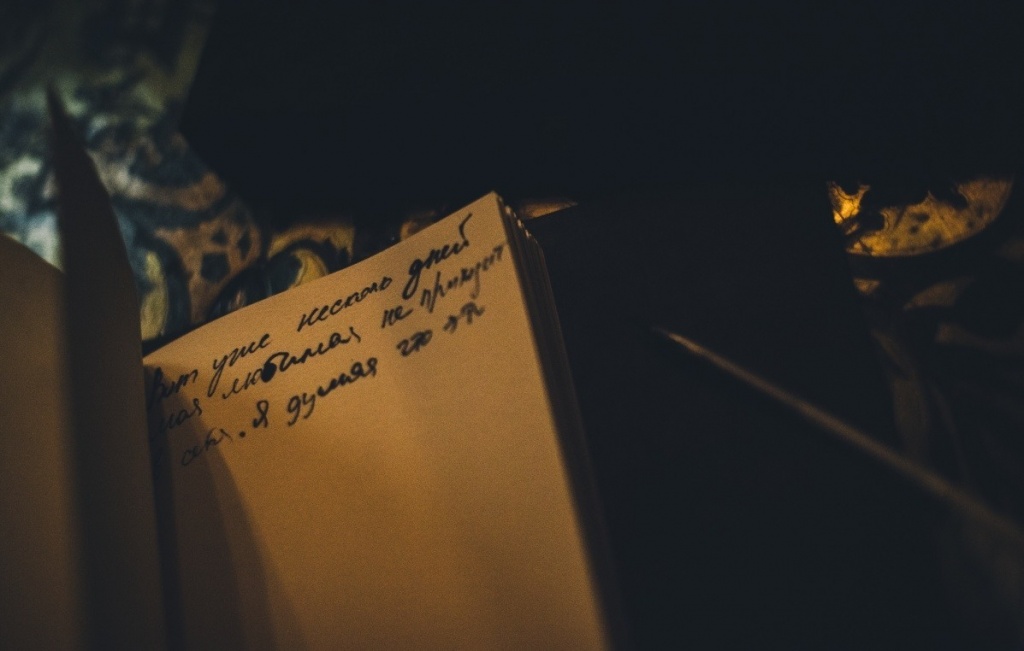 Вот уже несколь дней
моя любимая не приходит
в себя. Я думая что эт